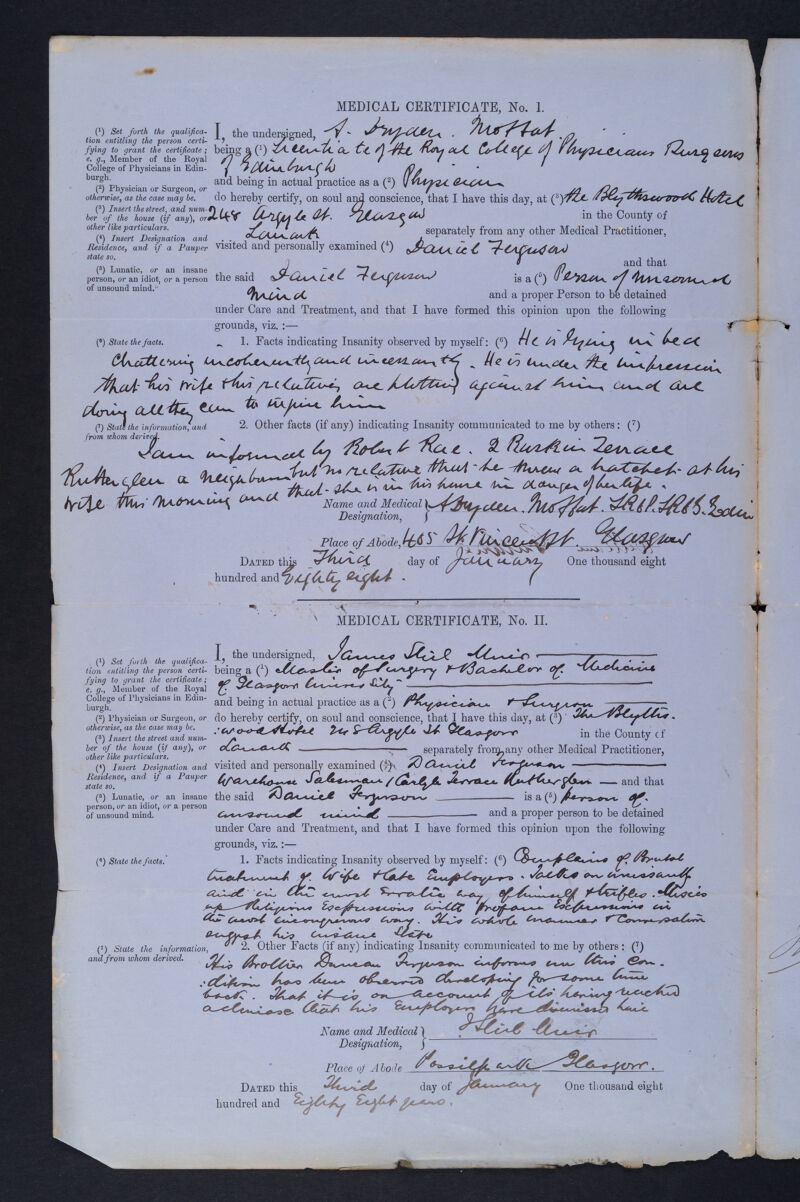 MEDICAL CERTIFICATE, No. I.
(¹) Set forth the qualifica-
tion entitling the person certi-
fying to grant the certificate;
e. g., Member of the Royal
College of Physicians in Edin-
burgh.
(²) Physician or Surgeon, or
otherwise, as the case may be.
(³) Insert the street, and num-
ber of the house (if any), or
other like particulars.
(⁴) Insert Designation and
Residence, and if a Pauper
state so.
(⁵) Lunatic, or an insane
person, or an idiot, or a person
of unsound mind.
I, the undersigned, A. Dryden. Moffat.
being a (¹) Licentiate of the Royal College of Physicians Surgeons
of Edinburgh
and being in actual practice as a (²) Physician
do hereby certify, on soul and conscience, that I have this day, at (³) the Blythswood Hotel
248 Argyle St. Glasgow in the County of
Lanark separately from any other Medical Practitioner,
visited and personally examined (⁴) Daniel Ferguson
and that
the said Daniel Ferguson is a (⁵) Person of unsound
mind and a proper Person to be detained
under Care and Treatment, and that I have formed this opinion upon the following
grounds, viz. :—
(⁶) State the facts.
1. Facts indicating Insanity observed by myself: (⁶) He is lying in bed
chattering incoherently and incessantly. He is under the impression
that his wife & his relatives are plotting against him and are
doing all they can to injure him
(⁷) State the information, and
from whom derived.
2. Other facts (if any) indicating Insanity communicated to me by others: (⁷)
I am informed by Robert Rae. 2 Ruskin Terrace
Rutherglen a neighbour but no relative that he threw a hatchet at his
wife this morning and that she is in his house in danger of her life.
Name and Medical Designation, A Dryden. Moffat. LRCP. LRCS. Edin
Place of Abode, 405 St. Vincent St. Glasgow
DATED this Third day of January One thousand eight
hundred and Eighty eight.
MEDICAL CERTIFICATE, No. II.
(¹) Set forth the qualifica-
tion entitling the person certi-
fying to grant the certificate;
e. g., Member of the Royal
College of Physicians in Edin-
burgh.
(²) Physician or Surgeon, or
otherwise, as the case may be.
(³) Insert the street and num-
ber of the house (if any), or
other like particulars.
(⁴) Insert Designation and
Residence, and if a Pauper
state so.
(⁵) Lunatic, or an insane
person, or an idiot, or a person
of unsound mind.
I, the undersigned, James Stiel Muir
being a (¹) Master of Surgery & Bachelor of Medicine
of Glasgow University
and being in actual practice as a (²) Physician & Surgeon
do hereby certify, on soul and conscience, that I have this day, at (³) The Blyths-
:wood Hotel 248 Argyle St Glasgow in the County of
Lanark separately from any other Medical Practitioner,
visited and personally examined (⁴) Daniel Ferguson
Warehouse Salesman 1 Carlyle Terrace Rutherglen and that
the said Daniel Ferguson is a (⁵) person of
unsound mind and a proper person to be detained
under Care and Treatment, and that I have formed this opinion upon the following
grounds, viz. :—
(⁶) State the facts.
1. Facts indicating Insanity observed by myself: (⁶) Complains of Brutal
treatment of Wife & late Employers. Talks on incessantly
and in the most Erratic way of himself & trifles. Mixes
up Religious Expressions with profane Expressions in
the most incongruous way. His whole manner & Conversation
suggest his insane State
(⁷) State the information,
and from whom derived.
2. Other Facts (if any) indicating Insanity communicated to me by others: (⁷)
His Brother Duncan Ferguson informs me this con-
:dition has been observed developing for some time
back. That it is on account of its having reached
a climax that his Employers have dismissed him
Name and Medical Designation, J Stiel Muir
Place of Abode Possilpark Glasgow.
DATED this Third day of January One thousand eight
hundred and Eighty Eight years.